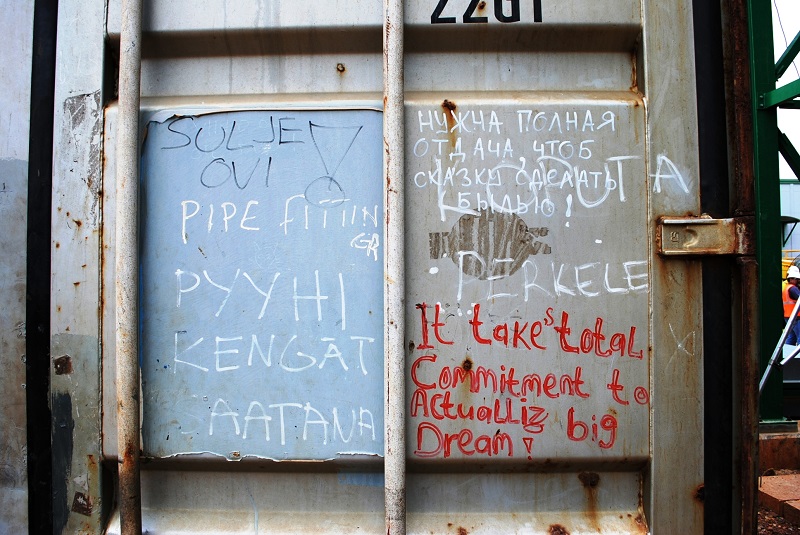 22G1
SULJE
OVI !
PIPE FITIIN
GR
PYYHI
KENGÄT
SAATANA
НУЖНА ПОЛНАЯ
ОТДАЧА, ЧТОБ
СКАЗКУ СДЕЛАТЬ
БЫЛЬЮ!
PERKELE
!!!
It takes total
Commitment to
Actualliz big
Dream!